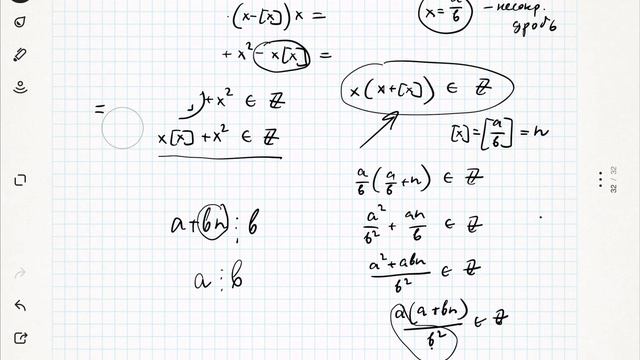 ·(x-[x])x =
x = a/b - несокр. дробь
+ x² - x[x] =
x(x+[x]) ∈ ℤ
= +x² ∈ ℤ
x[x] + x² ∈ ℤ
[x] = [a/b] = n
a/b (a/b + n) ∈ ℤ
a + bn ⋮ b
a²/b² + an/b ∈ ℤ
a ⋮ b
(a² + abn)/b² ∈ ℤ
a(a+bn)/b² ∈ ℤ
32 / 32